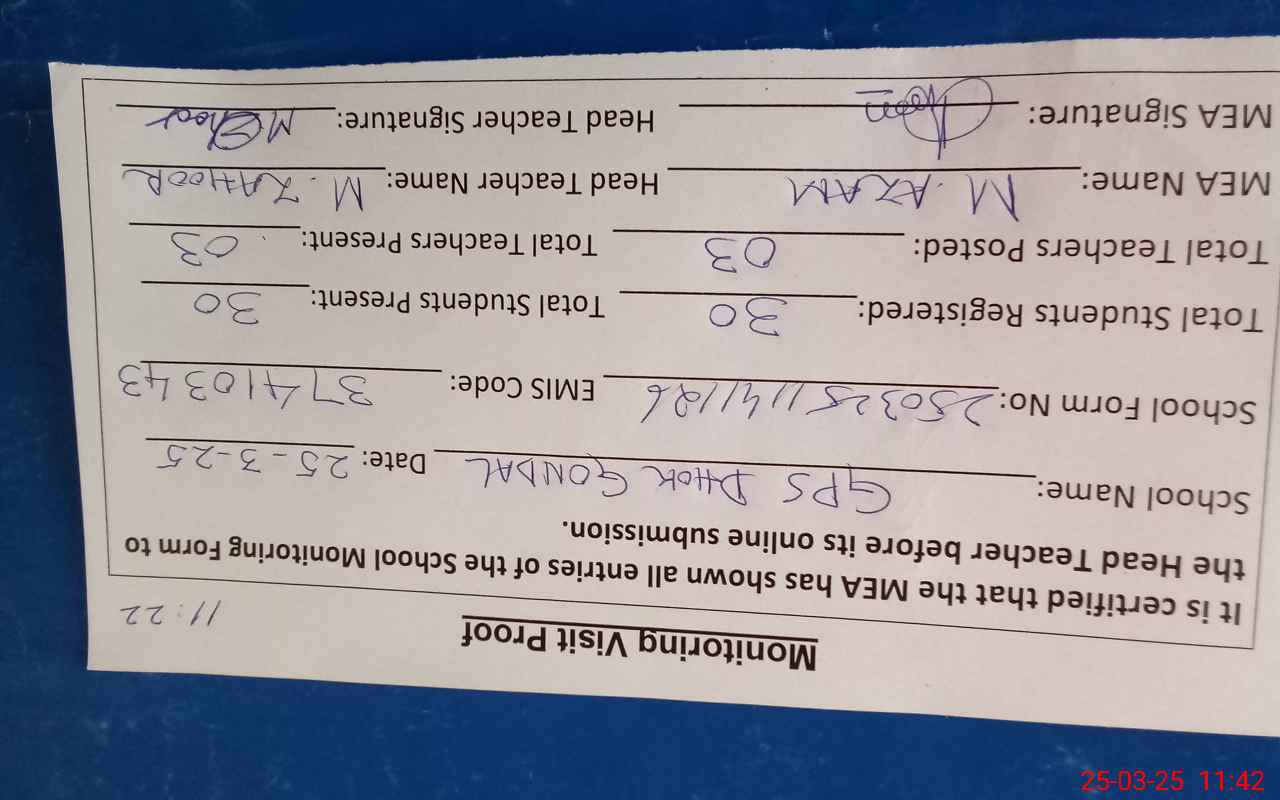 Monitoring Visit Proof
11:22
It is certified that the MEA has shown all entries of the School Monitoring Form to
the Head Teacher before its online submission.
School Name: GPS DHOK GONDAL Date: 25-3-25
School Form No: 2503251141126 EMIS Code: 37410343
Total Students Registered: 30 Total Students Present: 30
Total Teachers Posted: 03 Total Teachers Present: 03
MEA Name: M. AZAM Head Teacher Name: M. ZAHOOR
MEA Signature: Head Teacher Signature:
25-03-25 11:42